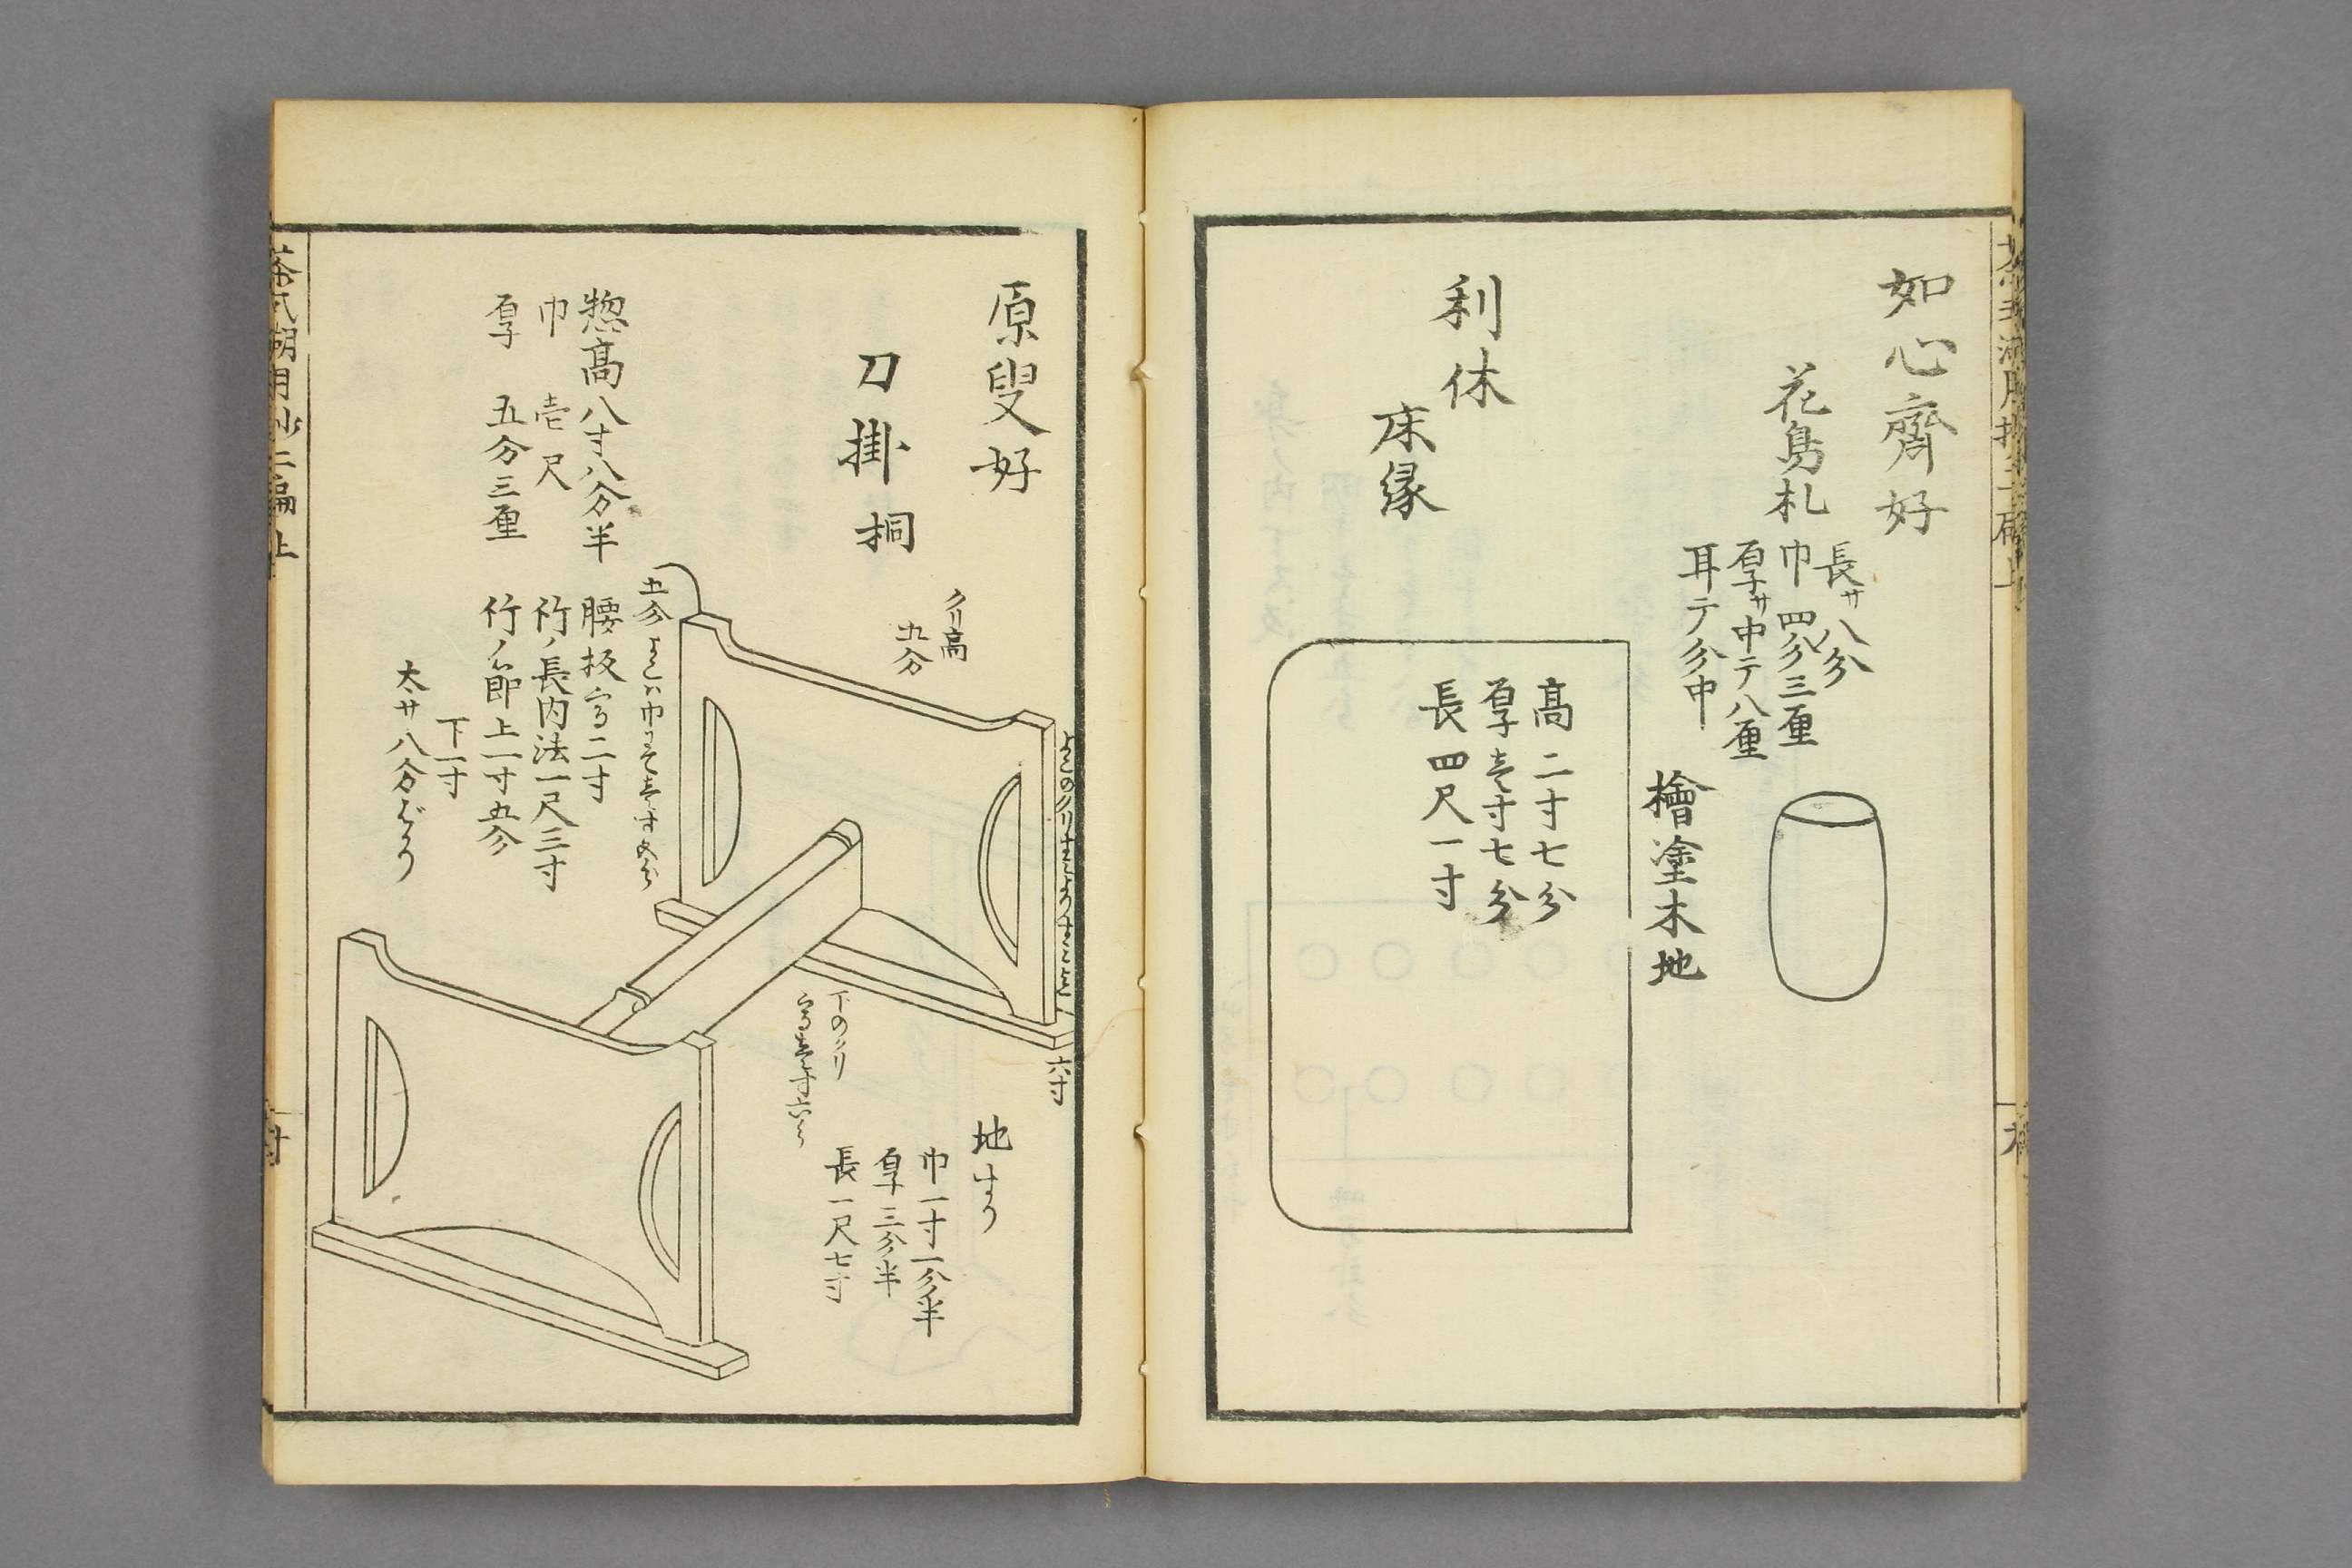 如心齊好
花鳥札
長サ八分
巾四分三厘
厚サ中テ八厘
耳テ分中
檜塗木地
利休
床縁
高二寸七分
厚壱寸七分
長四尺一寸
原叟好
刀掛桐
クリ高
五分
六寸
地すり
巾一寸一分半
厚三分半
長一尺七寸
下のクリ
高壱寸六分
惣高八寸八分半
巾壱尺
厚五分三厘
五分
腰板高二寸
竹ノ長内法一尺三寸
竹ノ節上一寸五分
下一寸
太サ八分ばかり
茶式湖月抄二編上